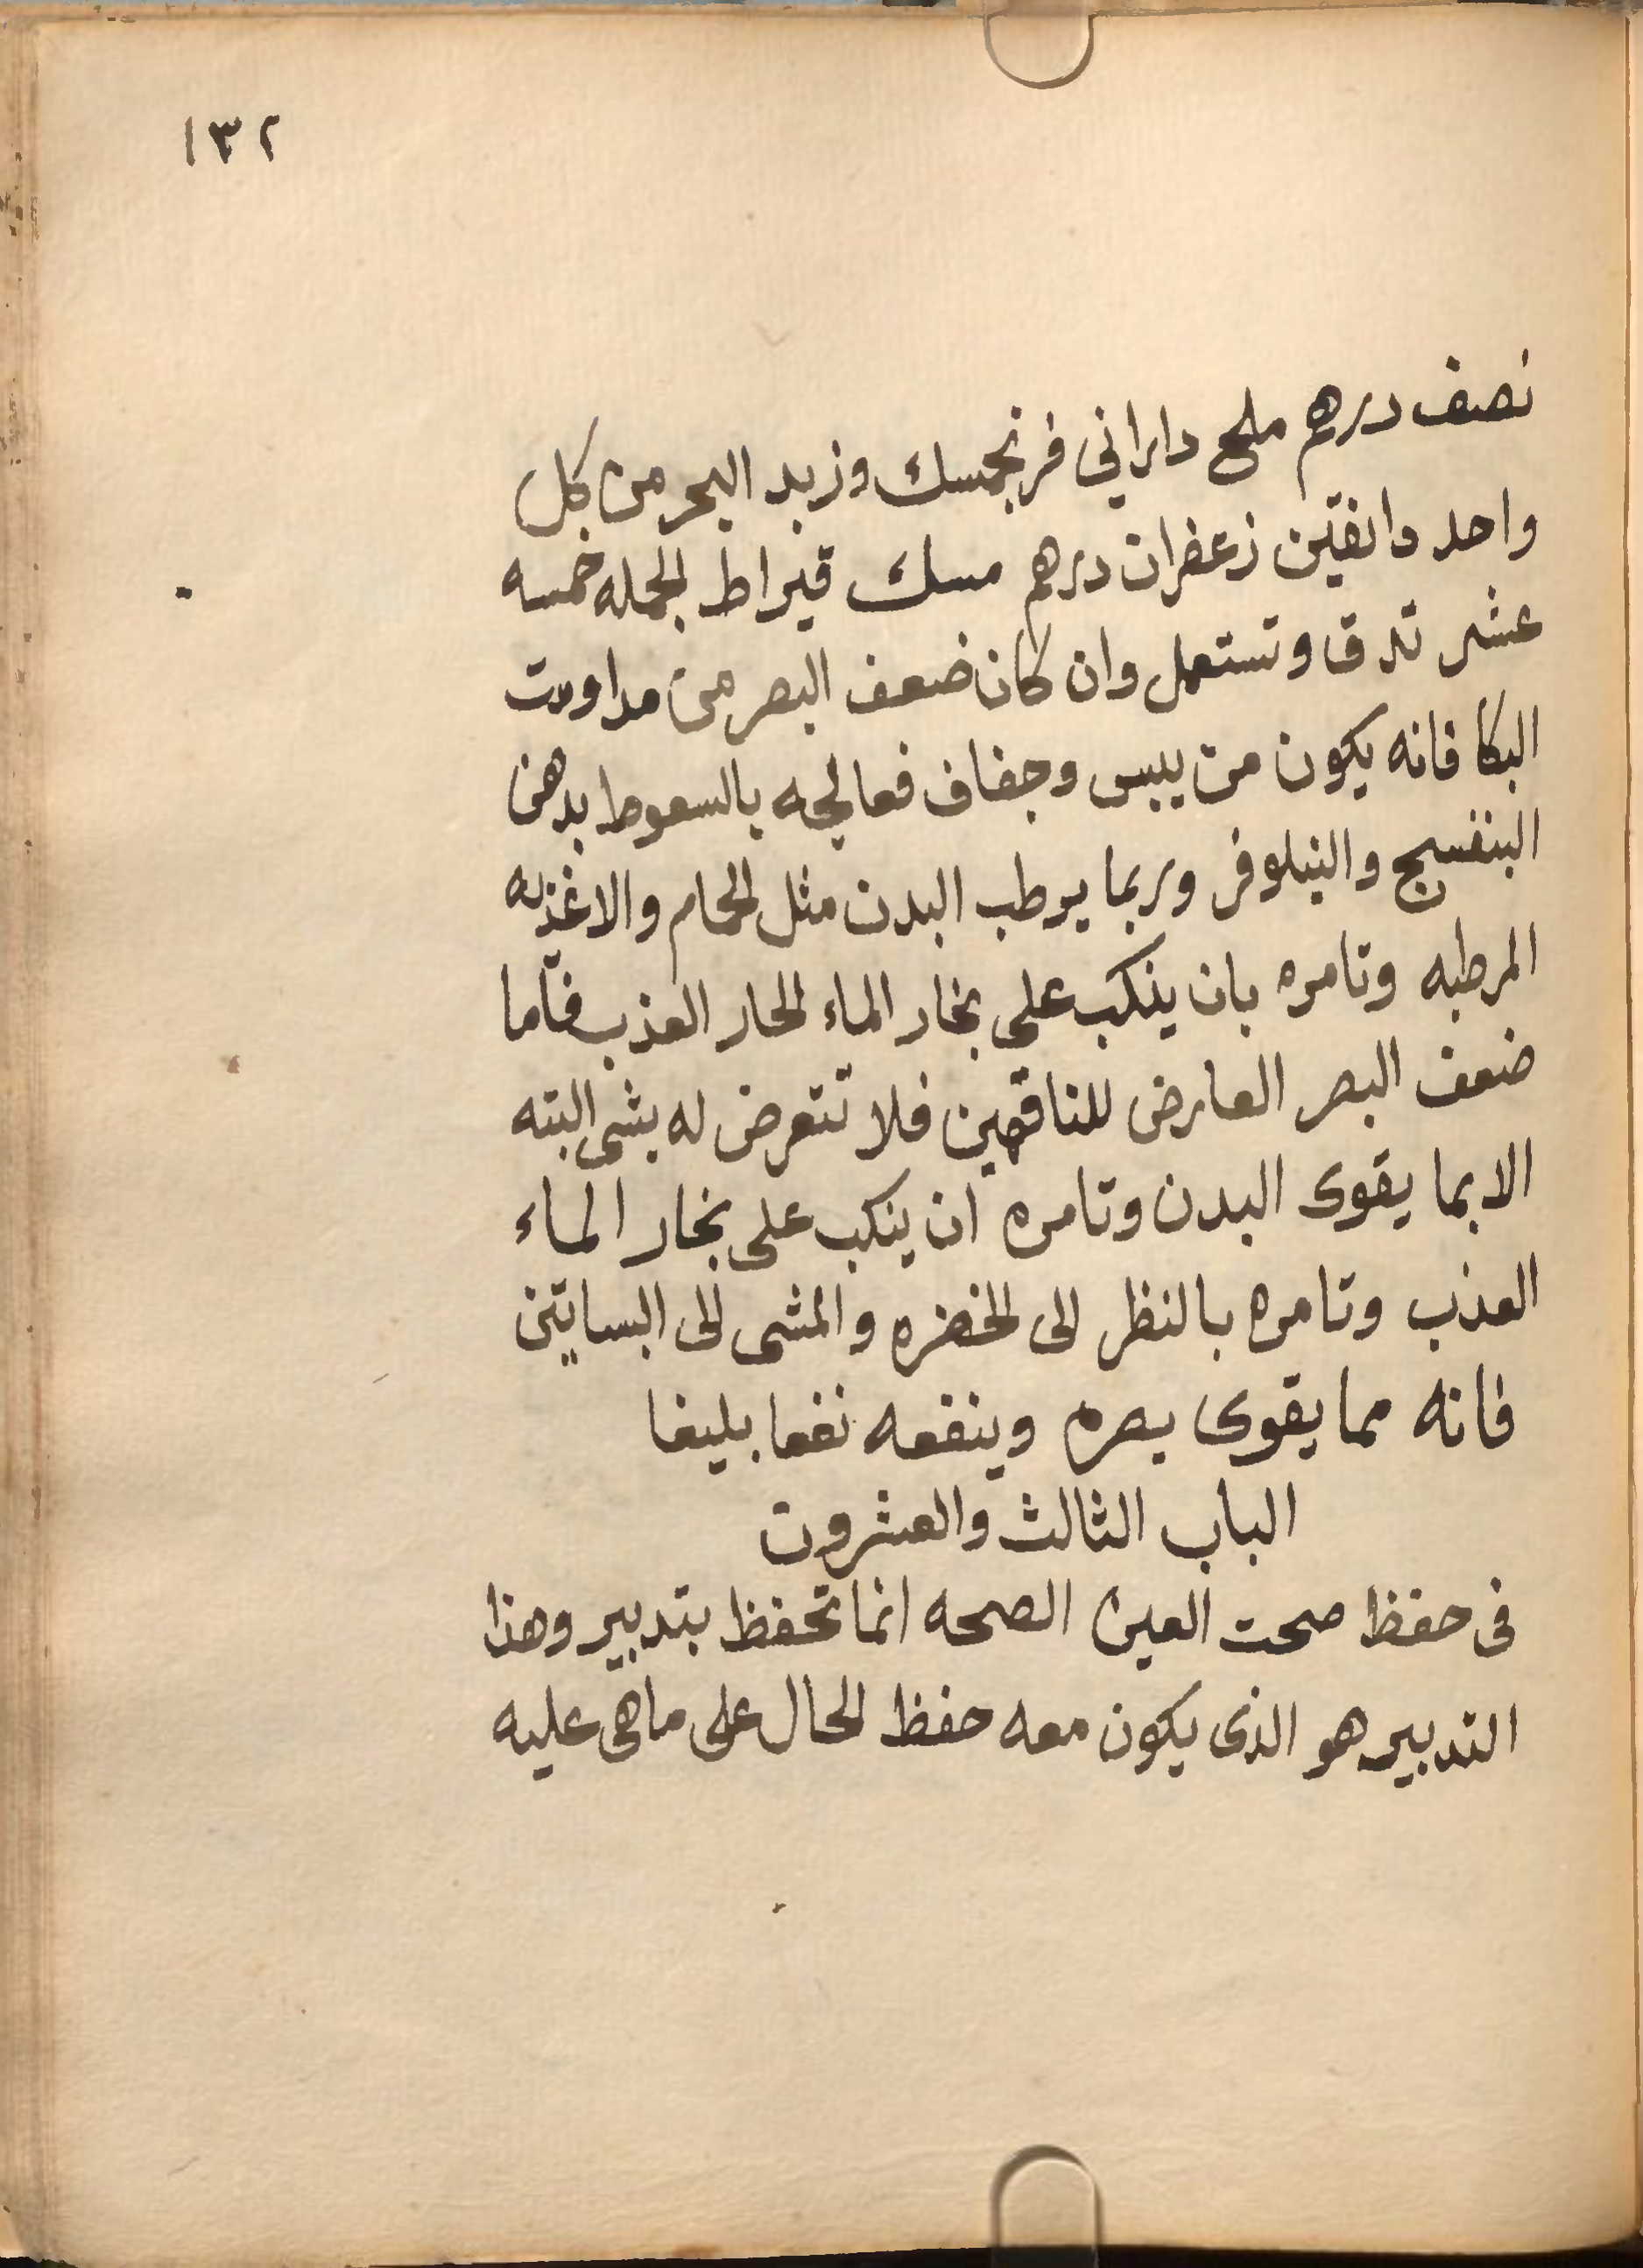 ١٣٢
نصف درهم ملح داراني فرنجمسك وزبد البحر من كل
واحد دانقين زعفران درهم مسك قيراط الجمله خمسه
عشر تدق وتستعمل وان كان ضعف البصر من مداومت
البكا فانه يكون من يبس وجفاف فعالجه بالسعوط بدهن
البنفسج والنيلوفر وربما يرطب البدن مثل الحمام والاغذيه
المرطبه وتامره بان ينكب على بخار الماء الحار العذب فاما
ضعف البصر العارض للناقهين فلا تتعرض له بشى البته
الا بما يقوى البدن وتامره ان ينكب على بخار الماء
العذب وتامره بالنظر الى الخضره والمشى الى البساتين
فانه مما يقوى بصره وينفعه نفعا بليغا
الباب الثالث والعشرون
فى حفظ صحت العين الصحه انما تحفظ بتدبير وهذا
التدبير هو الذى يكون معه حفظ الحال على ماهى عليه